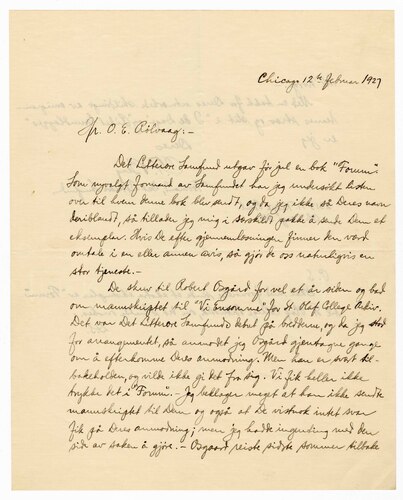 Chicago 12te Februar 1927
Hr. O. E. Rölvaag:-
Det Litterære Samfund utgav för jul en bok "Forum".
Som nyvalgt formand av Samfundet har jeg undersökt listen
over til hvem denne bok blev sendt, og da jeg ikke så Deres navn
deriblandt, så tillader jeg mig i særskild pakke å sende Dem et
eksemplar. Hvis De efter gjennemlæsningen finner den værd
omtale i en eller annen avis, så gjör de oss naturligvis en
stor tjeneste.-
De skrev til Robert Osgård for vel et år siden og bad
om manuskriptet til "Vi Ensomme" for St. Olaf College Arkiv.
Det var Det Litterære Samfunds debut på bredderne, og da jeg stod
for arrangementet, så anmodet jeg Osgård gjentagne gange
om å efterkomme Deres anmodning. Men han er svært til-
bakeholden, og vilde ikke gi det fra sig. Vi fik heller ikke
trykke det i "Forum".- Jeg beklager meget at han ikke sendte
manuskriptet til Dem og også at De vistnok intet svar
fik på Deres anmodning; men jeg hadde ingenting med den
side av saken å gjöre.- Osgaard reiste sidste sommer tilbake